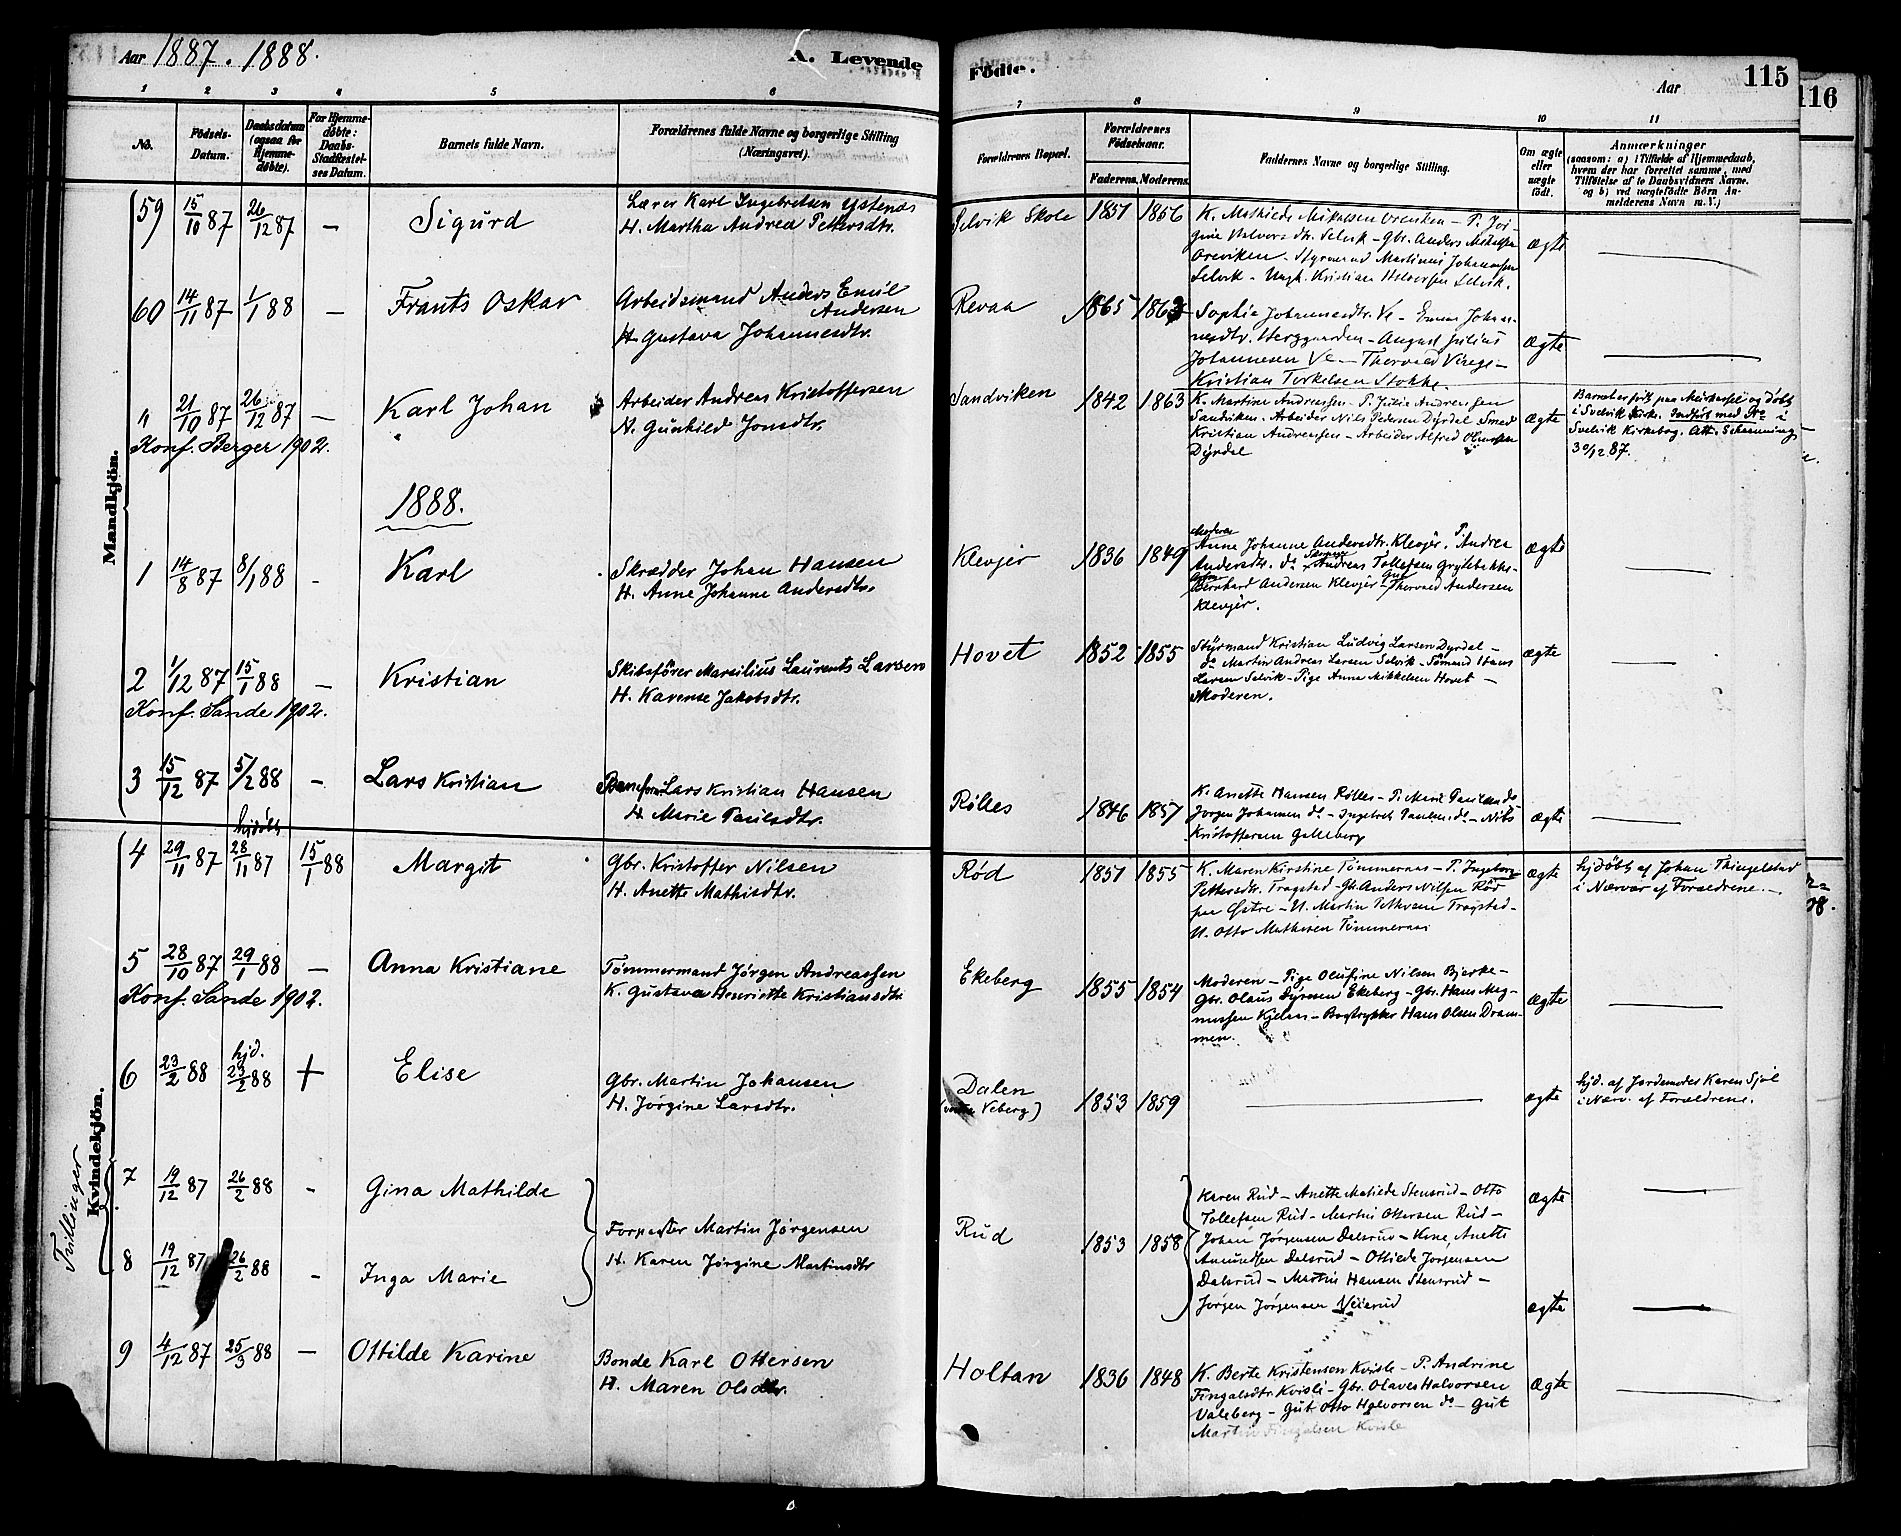 Aar 1887. 1888.
A. Levende
Fødte.
Aar
115
116
1 2 3 4 5 6 7 8 9 10 11
No.
Fødsels-
Datum.
Daabsdatum
(ogsaa for
Hjemme-
døbte).
For Hjemme-
døbte:
Daabs-
Stadfæstel-
ses Datum.
Barnets fulde Navn.
Forældrenes fulde Navne og borgerlige Stilling
(Næringsvei).
Forældrenes Bopæl.
Forældrenes
Fødselsaar.
Faderens. Moderens.
Faddernes Navne og borgerlige Stilling.
Om ægte
eller
uægte
født.
Anmærkninger
(saasom: a) i Tilfælde af Hjemmedaab,
hvem der har forrettet samme, med
Tilføielse af to Daabsvidners Navne.
og b) ved uægtefødte Børn An-
melderens Navn m. V.)
Mandkjøn.
59 15/10 87 26/12 87 – Sigurd
Lærer Karl Ingebretsen Ystenæs
H. Martha Andrea Pettersdtr.
Selvik Skole 1851 1856
K. Mathilde Mikalsen Oreviken – P. Jør-
gine Halvorsdtr. Selvik – Gbr. Anders Mikalsen
Oreviken. Styrmand Martinius Johannesen
Selvik – Ungk. Kristian Halvorsen Selvik.
ægte
60 14/11 87 1/1 88 – Frants Oskar
Arbeidsmand Anders Emil
Andersen
H. Gustava Johannesdtr.
Revaa 1865 1863
Sophie Johannesdtr. Ve – Emma Johan-
nesdtr. Herggaarden – August Julius
Johannesen Ve – Thorvald Vinge –
Kristian Torkelsen Stokke.
ægte
" 21/10 87 26/12 87 – Karl Johan
Konf. Berger 1902.
Arbeider Andreas Kristoffersen
H. Gunhild Jonsdtr.
Sandviken 1842 1863
K. Martine Andreassen – P. Julie Andreassen
Sandviken. Arbeider Nils Pedersen Dyrdal Smed
Kristian Andreassen – Arbeider Alfred
Dyrdal
ægte
Barnet døbt i Svelvik Kirke. Indført med No i
Svelvik Kirkebog. Att. Schanning
30/12 87.
1888.
1 14/8 87 8/1 88 – Karl
Skrædder Johan Hansen
H. Anne Johanne Andersdtr.
Klevjer 1836 1849
Moderen
Anne Johanne Andersdtr. Klevjer. P. Andrea
Andersdtr. do Andreas Tollefsen Grytebekke –
Bernhard Andersen Klevjer – Thorvald Andersen
Klevjer.
ægte
2 1/12 87 15/1 88 – Kristian
Konf. Sande 1902.
Skibsfører Marsilius Laurents Larsen
H. Karense Jakobsdtr.
Hovet 1852 1855
Styrmand Kristian Ludvig Larsen Dyrdal –
do Martin Andreas Larsen Selvik – Sømand Hans
Larsen Selvik – Pige Anna Mikkelsen Hovet –
Moderen.
ægte
3 15/12 87 5/2 88 – Lars Kristian
Lars Kristian Hansen
H. Marie Paulsdtr.
Rølles 1846 1857
K. Anette Hansen Rølles – P. Marie Paulsen do
Jørgen Johansen do – Ingebret Paulsen do – Nils
Kristoffersen Galleberg
ægte
Kvindekjøn.
4 29/11 87 hjdøbt 28/11 87 15/1 88 Margit
Gbr. Kristoffer Nilsen
H. Anette Mathisdtr.
Rød 1851 1855
K. Maren Kirstine Tømmeraas – P. Ingeborg
Pettersdtr. Fragstad – Gb. Anders Nilsen Rød
paa Østre – U. Martin Pettersen Fragstad –
U. Otto Mathisen Tømmeraas
ægte
hjdøbt af Johan Thingelstad
i Nærvær af Forældrene. –
5 28/10 87 29/1 88 – Anna Kristiane
Konf. Sande 1902.
Tømmermand Jørgen Andreassen
K. Gustava Henriette Kristiansdtr.
Ekeberg 1855 1854
Moderen – Pige Olufine Nilsen Bjerke –
Gbr. Olaus Ekeberg – Gbr. Hans Mag-
nussen Kjelaas – Bogtrykker Hans Olsen Dram-
men.
ægte
6 23/2 88 hjd. 23/2 88 + Elise
Gbr. Martin Johansen
H. Jørgine Larsdtr.
Dalen
(Veberg) 1853 1859
ægte
hjd. af Jordemoder Karen Sjøl
i Nærv. af Forældrene.
Tvillinger
7 19/12 87 26/2 88 – Gina Mathilde
8 19/12 87 26/2 88 – Inga Marie
Forpagter Martin Jørgensen
H. Karen Jørgine Martinsdtr.
Rud 1853 1858
Karen Rud – Anette Matilde Stensrud – Otto
Tollefsen Rud – Martin Ottersen Rud –
Johan Jørgensen Dalsrud – Kone Anette
Amundsen Dalsrud – Ottilde Jørgensen
Dalsrud – Martin Hansen Stensrud –
Jørgen Jørgensen Veierud
ægte
ægte
9 4/12 87 25/3 88 – Ottilde Karine
Bonde Karl Ottersen
H. Maren Olsdtr.
Holtan 1836 1848
K. Berte Kristensen Kvisle – P. Andrine
Fingalsdtr. Kvisli – Gbr. Olaves Halvorsen
Valeberg – Gut Otto Halvorsen do – Gut
Martin Fingalsen Kvisle
ægte